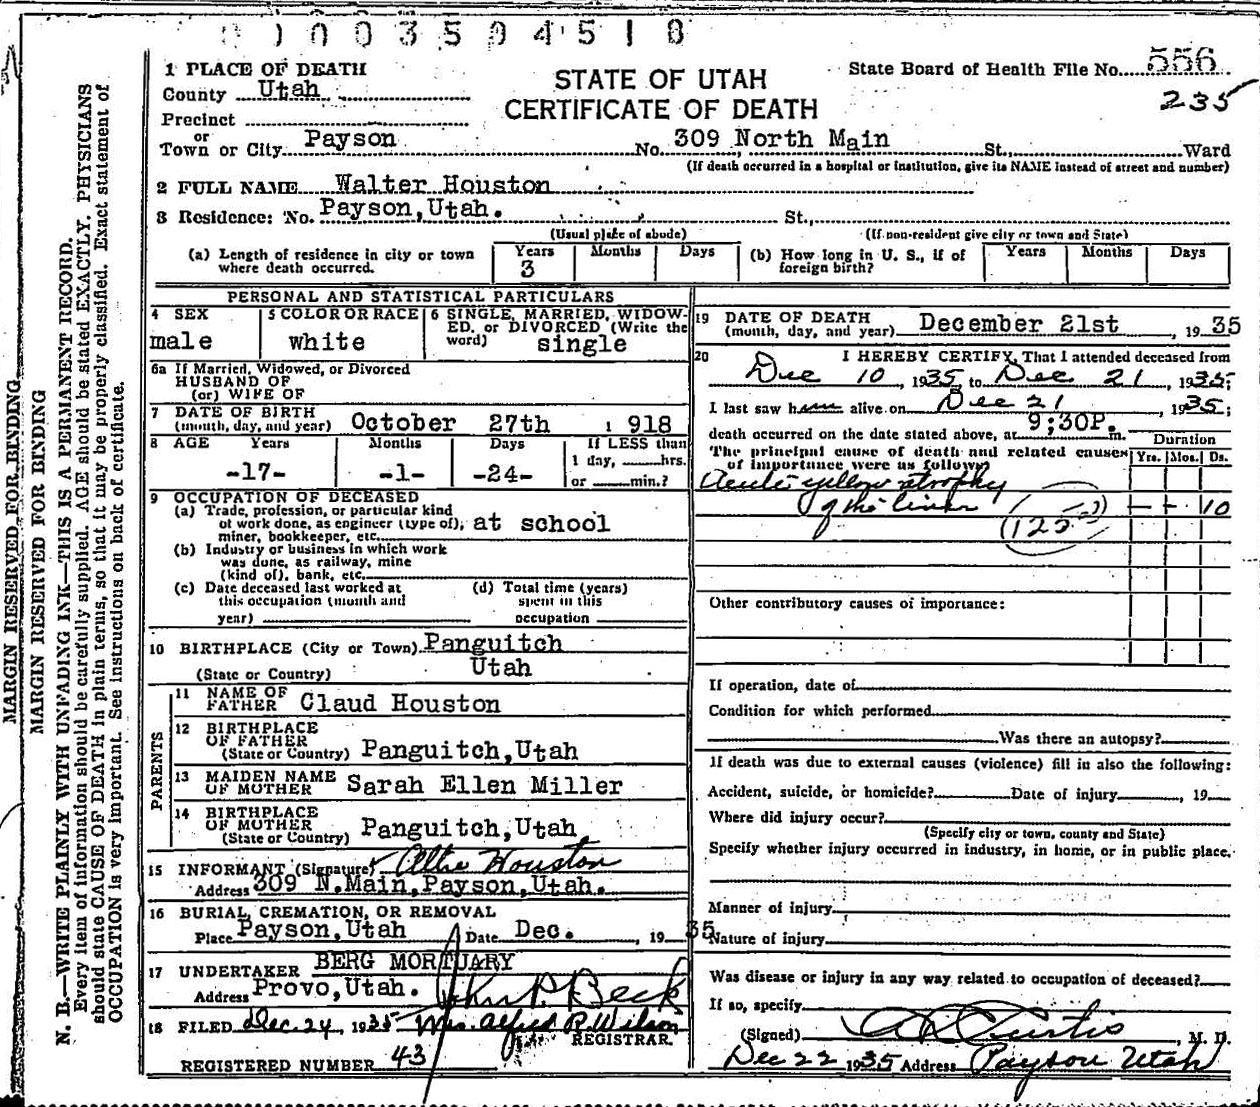 0 0 0 0 3 5 0 4 5 1 8
1 PLACE OF DEATH
County Utah
Precinct
or
Town or City Payson
STATE OF UTAH
CERTIFICATE OF DEATH
State Board of Health File No. 556
235
No. 309 North Main St., Ward
(If death occurred in a hospital or institution, give its NAME instead of street and number)
2 FULL NAME Walter Houston
3 Residence: No. Payson, Utah. St.,
(Usual place of abode) (If non-resident give city or town and State)
(a) Length of residence in city or town where death occurred. Years 3 Months Days
(b) How long in U. S., if of foreign birth? Years Months Days
PERSONAL AND STATISTICAL PARTICULARS
4 SEX male
5 COLOR OR RACE white
6 SINGLE, MARRIED, WIDOWED, or DIVORCED (Write the word) single
6a If Married, Widowed, or Divorced
HUSBAND OF
(or) WIFE OF
7 DATE OF BIRTH
(month, day, and year) October 27th 1918
8 AGE Years -17- Months -1- Days -24-
If LESS than
1 day, hrs.
or min.?
9 OCCUPATION OF DECEASED
(a) Trade, profession, or particular kind
of work done, as engineer (type of),
miner, bookkeeper, etc. at school
(b) Industry or business in which work
was done, as railway, mine
(kind of), bank, etc.
(c) Date deceased last worked at
this occupation (month and
year)
(d) Total time (years)
spent in this
occupation
10 BIRTHPLACE (City or Town) Panguitch
(State or Country) Utah
PARENTS
11 NAME OF FATHER Claud Houston
12 BIRTHPLACE OF FATHER
(State or Country) Panguitch, Utah
13 MAIDEN NAME OF MOTHER Sarah Ellen Miller
14 BIRTHPLACE OF MOTHER
(State or Country) Panguitch, Utah
15 INFORMANT (Signature) Houston
Address 309 N. Main, Payson, Utah.
16 BURIAL, CREMATION, OR REMOVAL
Place Payson, Utah Date Dec. , 19 35
17 UNDERTAKER BERG MORTUARY
Address Provo, Utah. John P. Beck
18 FILED Dec. 24, 1935 Mrs. Alfred R. Wilson
REGISTRAR.
REGISTERED NUMBER 43
19 DATE OF DEATH
(month, day, and year) December 21st , 1935
20 I HEREBY CERTIFY, That I attended deceased from
Dec 10, 1935, to Dec 21, 1935;
I last saw him alive on Dec 21, 1935;
death occurred on the date stated above, at 9:30P. m.
Duration
The principal cause of death and related causes Yrs. Mos. Ds.
of importance were as follows
Acute yellow atrophy
of the liver - - 10
(125)
Other contributory causes of importance:
If operation, date of
Condition for which performed
Was there an autopsy?
If death was due to external causes (violence) fill in also the following:
Accident, suicide, or homicide? Date of injury , 19
Where did injury occur?
(Specify city or town, county and State)
Specify whether injury occurred in industry, in home, or in public place.
Manner of injury
Nature of injury
Was disease or injury in any way related to occupation of deceased?
If so, specify
(Signed) Curtis , M. D.
Dec 22 1935 Address Payson Utah
MARGIN RESERVED FOR BINDING
MARGIN RESERVED FOR BINDING
N. B.—WRITE PLAINLY WITH UNFADING INK—THIS IS A PERMANENT RECORD.
Every item of information should be carefully supplied. AGE should be stated EXACTLY. PHYSICIANS
should state CAUSE OF DEATH in plain terms, so that it may be properly classified. Exact statement of
OCCUPATION is very important. See instructions on back of certificate.